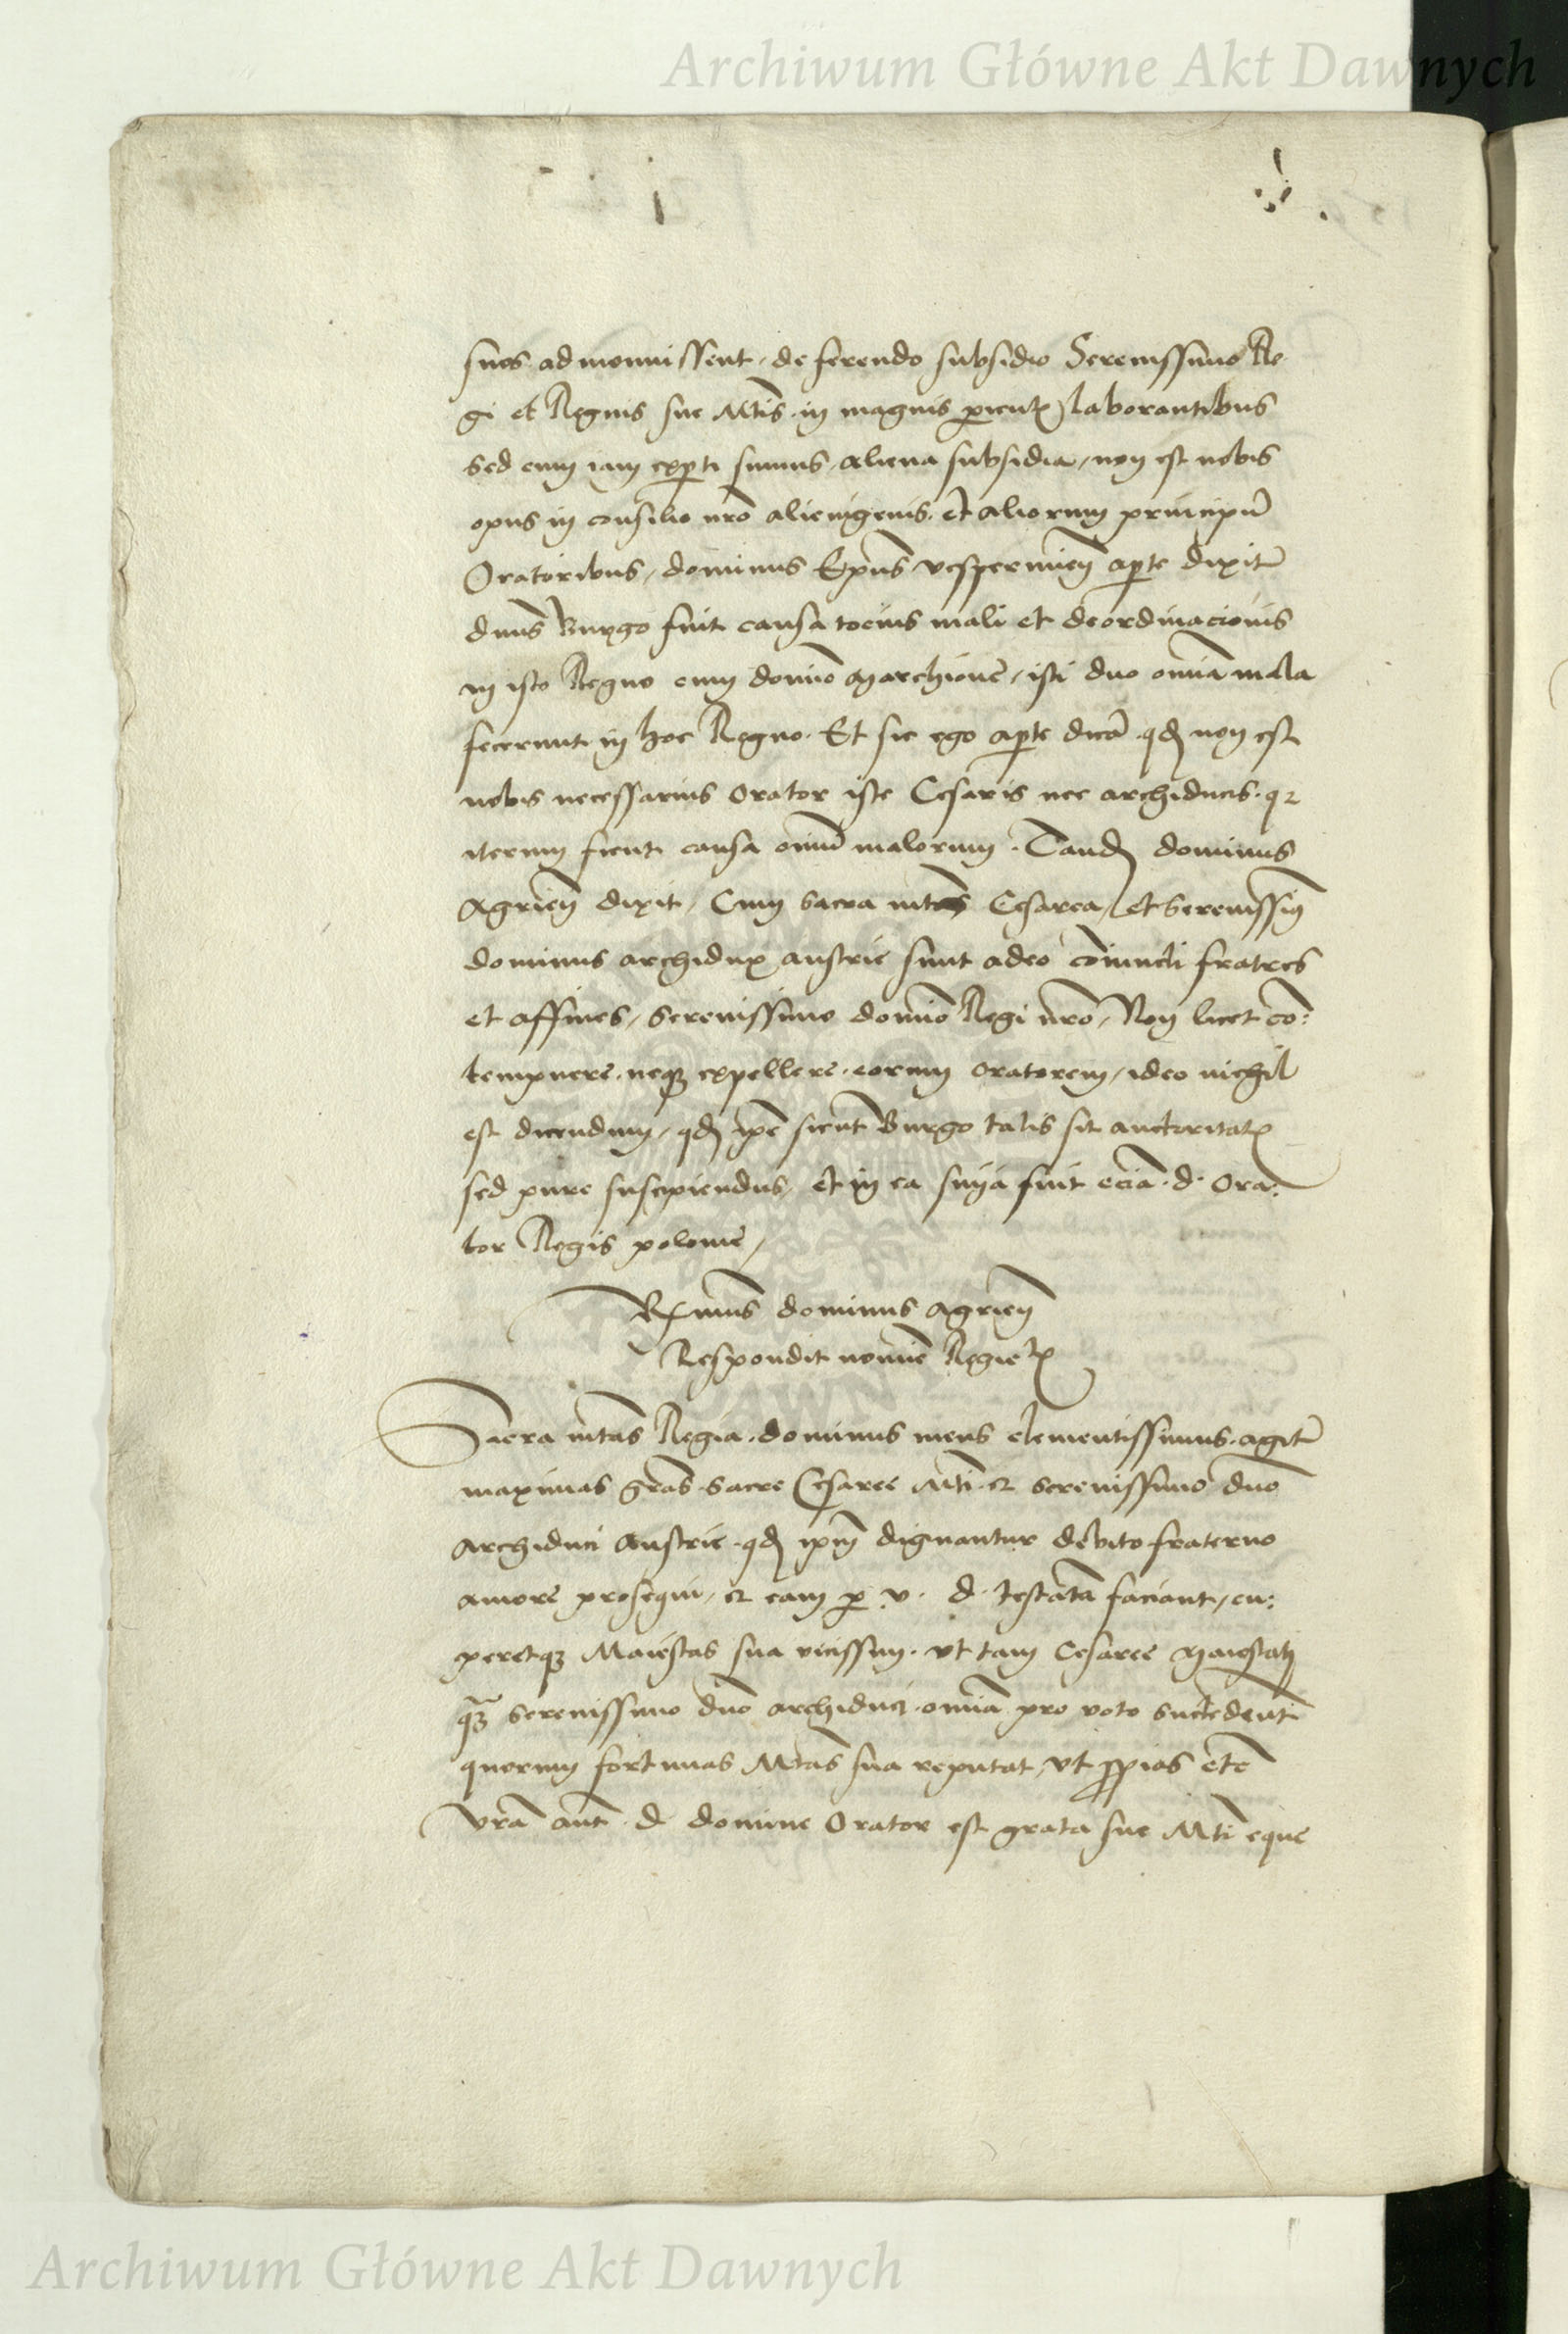 Archiwum Główne Akt Dawnych
suos admonuissent, de ferendo subsidio Serenissimo Re
gi et Regnis sue Mtis in magnis laborantibus
sed cum iam experti sumus aliena subsidia, non est nobis
opus in consilio nro alienigenis et aliorum principu
Oratoribus, dominus Epus vesprimien aperte dixit
dnus Burgo fuit causa tocius mali et deordinacionis
in isto Regno cum domino Marchione, isti duo omnia mala
fecerunt in hoc Regno. Et sic ego aperte dica qd non est
nobis necessarius Orator iste Cesaris nec archiducis. q
iterum fient causa omniu malorum. Tand dominus
Agrien dixit, Cum sacra mtas Cesarea, et serenissim
dominus archidux austrie sunt adeo coniuncti fratres
et affines, serenissimo domino Regi nro, Non licet co:
tempnere neq expellere eorum oratorem, ideo nichil
est dicendum, qd ipe sicut Burgo talis sit auctoritat
sed pure suscipiendus, et in ea snia fuit ecia d. Ora:
tor Regis polonie,
Rmus dominus Agrien
Respondit nomine Regie
Sacra mtas Regia dominus meus clementissimus agit
maximas gras sacre Cesaree Mti et serenissimo dno
Archiduci Austrie qd ipm dignantur debito fraterno
amore prosequi, et eam p v. d. testata faciant, cu:
peretq Maiestas sua vicissim ut tam Cesaree Maiestati
q serenissimo dno archiduci omnia pro voto succedent
quorum fortunas Mtas sua reputat, ut pprias etc
vra aut d domine Orator est grata sue Mti eque
Archiwum Główne Akt Dawnych